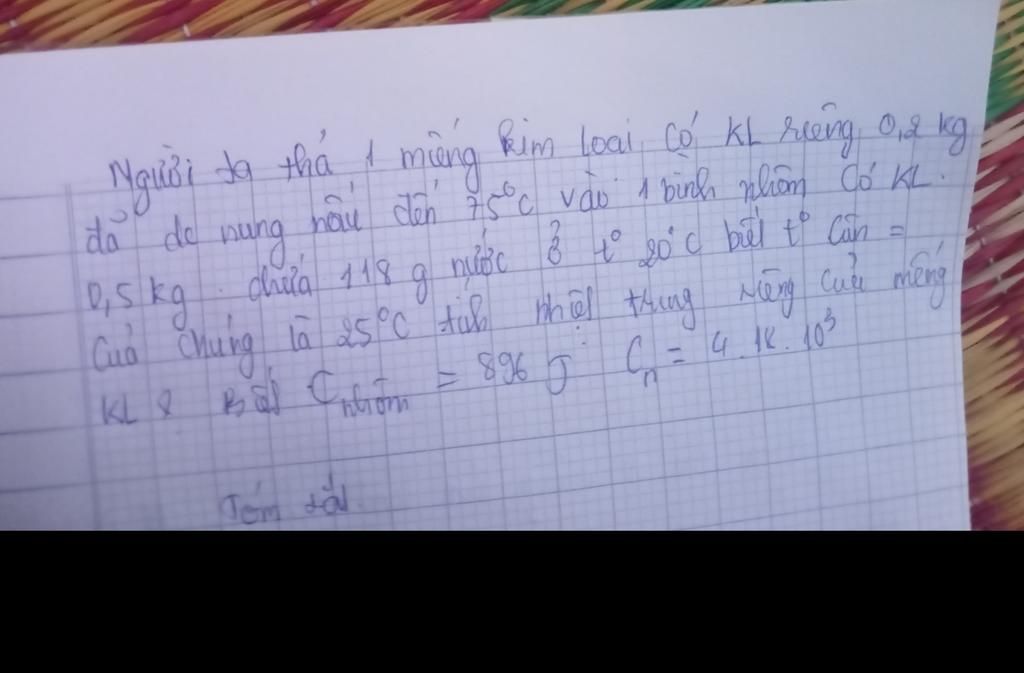 Người ta thả 1 miếng kim loại có KL riêng 0,2 kg
đã đc nung nấu đến 75°C vào 1 bình nhôm có KL.
0,5 kg. chứa 118 g nước ở t° 20°C biết t° cân =
của chúng là 25°C tính nhiệt thung riêng của miếng
KL? Biết C nhôm = 896 J C n = 4.18.10³
Tóm tắt